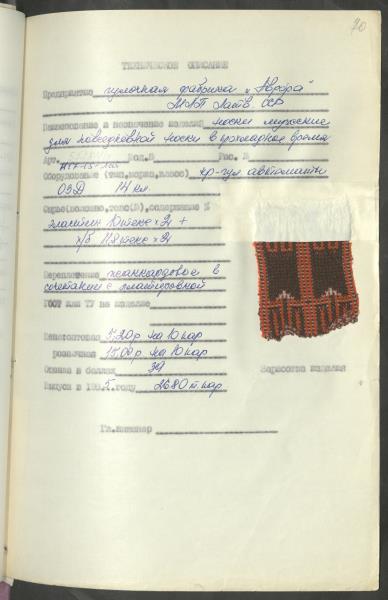 70
ТЕХНИЧЕСКОЕ ОПИСАНИЕ
Предприятие чулочная фабрика "Аврора"
МЛП Латв. ССР
Наименование и назначение изделия носки мужские
для повседневной носки в прохладное время
Арт. Мод.№ Рис. №
Оборудование (тип, марка, класс) кр-чул автоматы
ОЗД 14 кл
эластик 10 текс х 2 +
х/б 11.8 текс х 2
Переплетение жаккардовое в
сочетании с платировкой
ГОСТ или ТУ на изделие
5.20 р на 10 пар
розничная 15.00 р. на 10 пар
Оценка в баллах 39
Выпуск в 1985 году 2680 т.пар
Гл.инженер
изделия